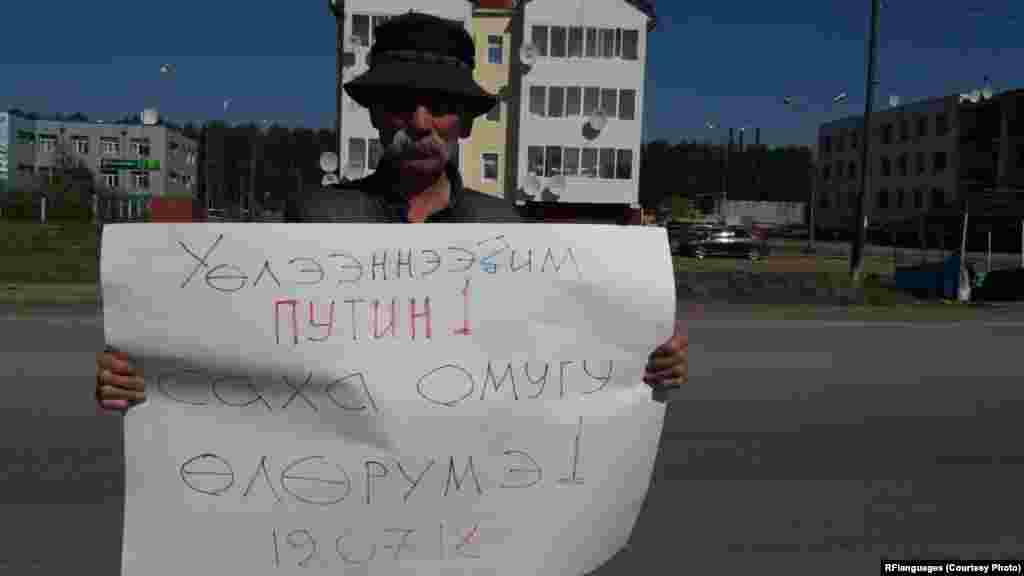 Убɵлээннээҕим
ПУТИН!
саха омугу
ɵлɵрүмэ!
19.07.18
RFlanguages (Courtesy Photo)